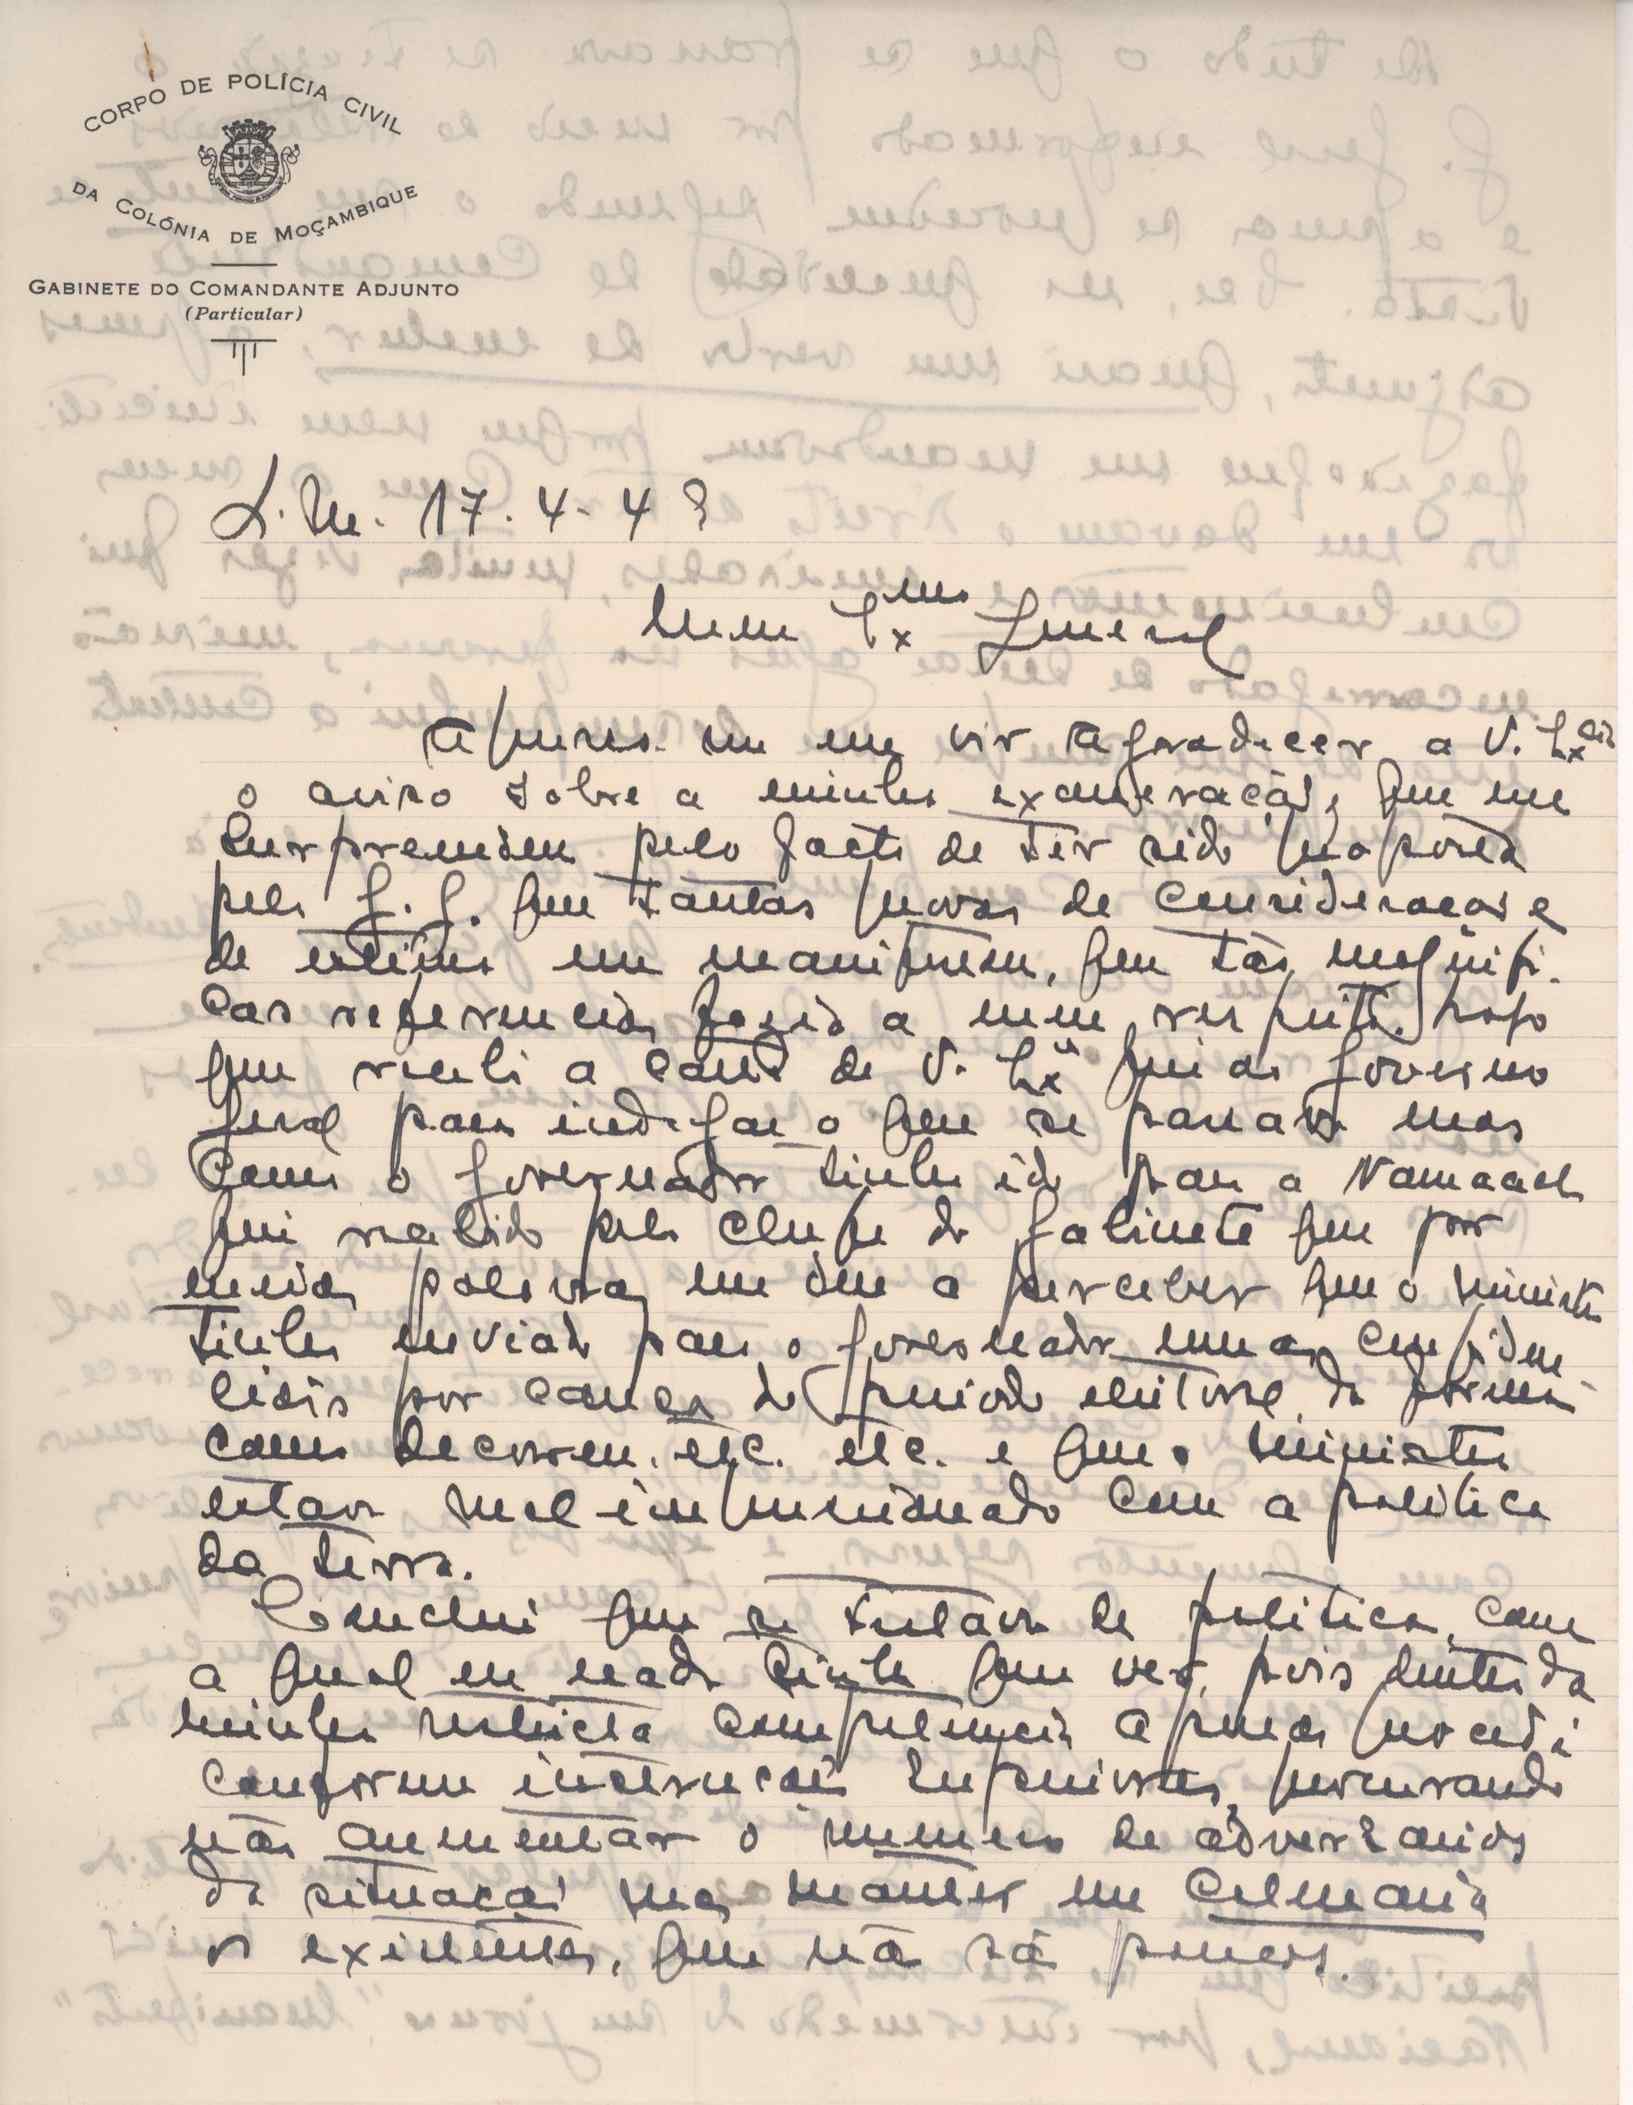 CORPO DE POLÍCIA CIVIL
DA COLÓNIA DE MOÇAMBIQUE
GABINETE DO COMANDANTE ADJUNTO
(Particular)
L. M. 17. 4. 49
Meu Exmo General
Apresso-me em vir agradecer a V. Excia
o aviso sobre a minha exoneração, que me
surpreendeu pelo facto de ter sido proposta
pelo G. G. que tantas provas de consideração e
de estima me manifestou, que tão magnifi-
cas referencias fazia a meu respeito. Logo
que recebi a carta de V. Exa fui ao Governo
Geral para indagar o que se passava mas
como o Governador tinha ido para a Namaacha
fui recebido pelo chefe do gabinete que por
meias palavras me deu a perceber que o Ministro
tinha enviado para o Governador umas confiden-
ciais por causa do periodo eleitoral, da forma
como decorreu. etc. etc. e que o Ministro
estava mal impressionado com a politica
da terra.
Conclui que se tratava de politica, com
a qual eu nada tinha que ver, pois dentro da
minha restricta competencia apenas procedi
conforme instruções superiores, procurando
não aumentar o numero de adversarios
da situação mas manter em calmaria
os existentes, que não são poucos.